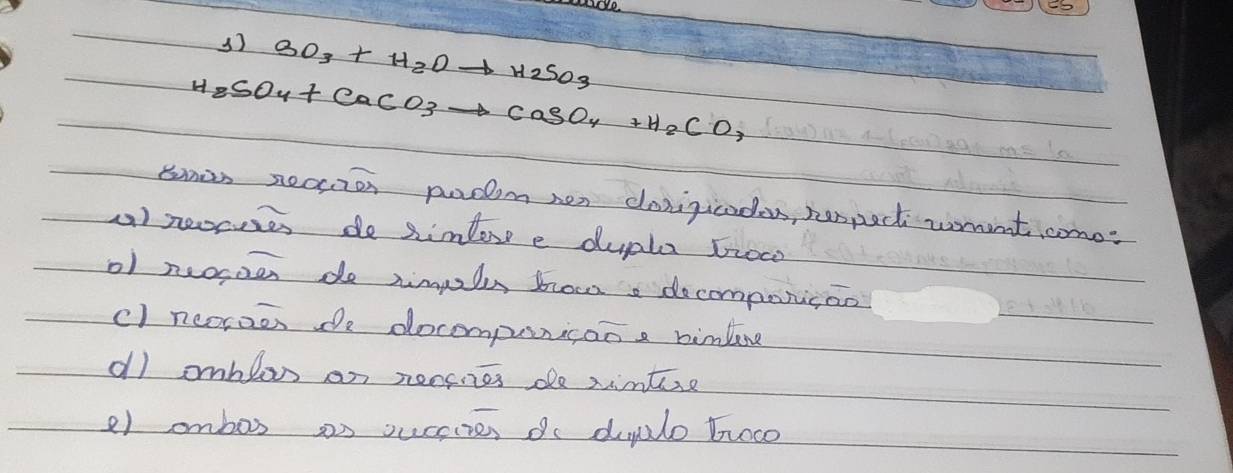 1) SO3 + H2O → H2SO3
H2SO4 + CaCO3 → CaSO4 + H2CO3
Essas reações podem ser classificadas, respectivamente, como:
a) reações de síntese e dupla troca
b) reações de simples troca e decomposição
c) reações de decomposição e síntese
d) ambas as reações de síntese
e) ambas as reações de duplo troca